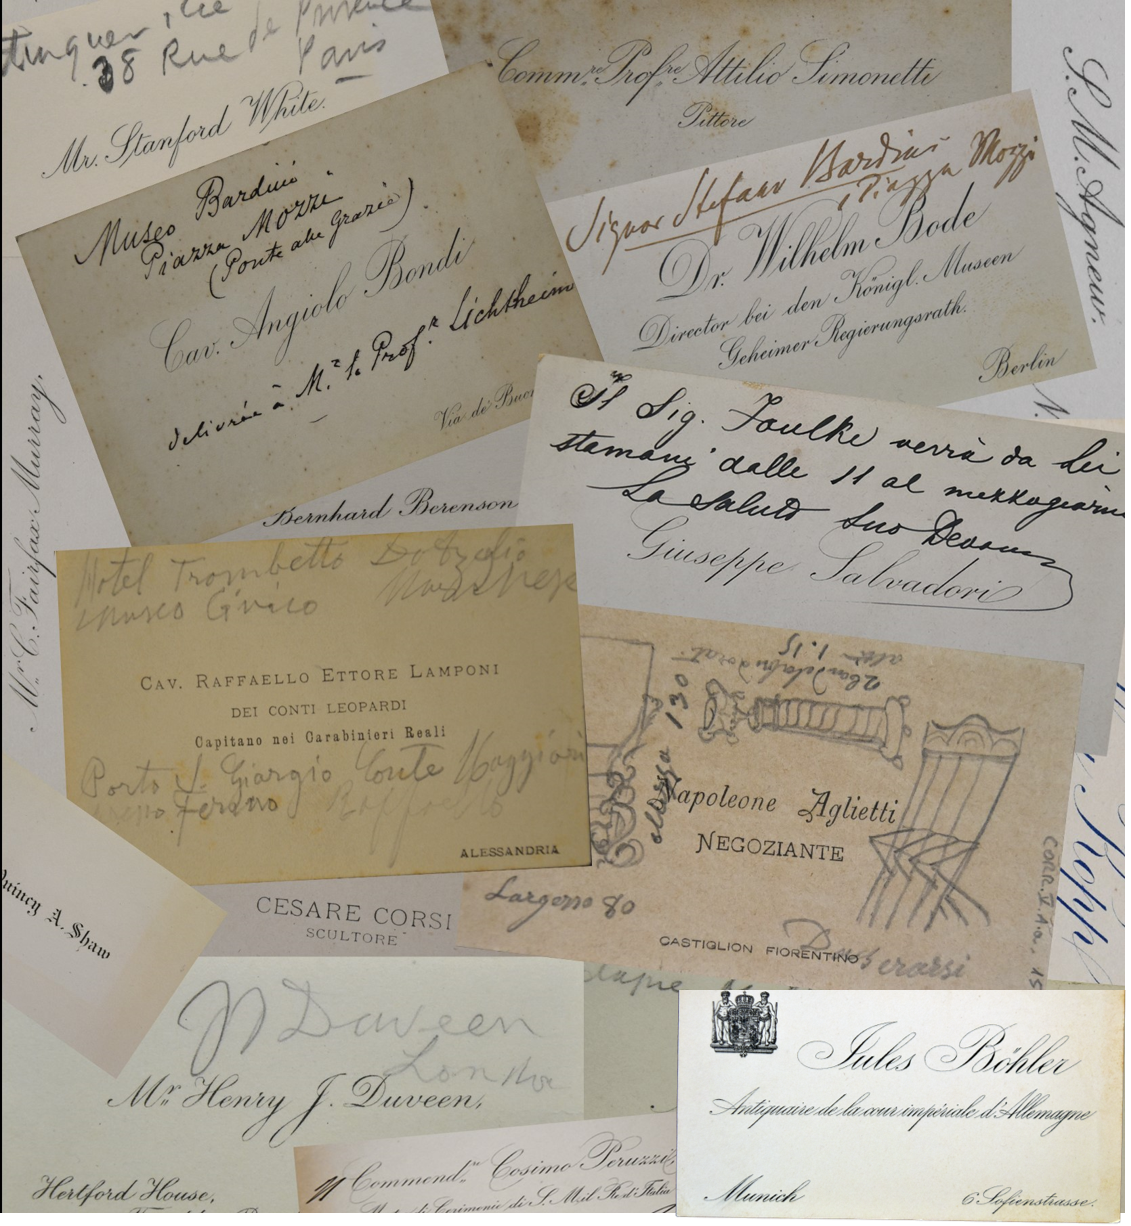 38 Rue de Provence
Paris
Mr. Stanford White.
Comm.re Prof.re Attilio Simonetti
Pittore
S. M. Agnew.
Signor Stefano Bardini
Piazza Mozzi
Dr. Wilhelm Bode
Director bei den Königl. Museen
Geheimer Regierungsrath.
Berlin
Museo Bardini
Piazza Mozzi
(Ponte alle Grazie)
Cav. Angiolo Bondi
delivrée à M.r le Prof.r Lichtheim
Via de' Buon
Mr. C. Fairfax Murray.
Bernhard Berenson
Il Sig. Foulke verrà da lei
stamani dalle 11 al mezzogiorno
La saluto Suo Devmo
Giuseppe Salvadori
Hotel Trombetta
Museo Civico
CAV. RAFFAELLO ETTORE LAMPONI
DEI CONTI LEOPARDI
Capitano nei Carabinieri Reali
Porto S. Giorgio Conte
Fermo Raffaello
ALESSANDRIA
alt 1.15
altezza 130
Napoleone Aglietti
NEGOZIANTE
Largezza 80
CASTIGLION FIORENTINO
CORR. V. A.
Ropp
Quincy A. Shaw
CESARE CORSI
SCULTORE
Duveen
London
Mr. Henry J. Duveen,
Hertford House,
Commend.re Cosimo Peruzzi
di Cerimonie di S. M. il Re d'Italia
Jules Böhler
Antiquaire de la cour impériale d'Allemagne
Munich
6 Sofienstrasse.